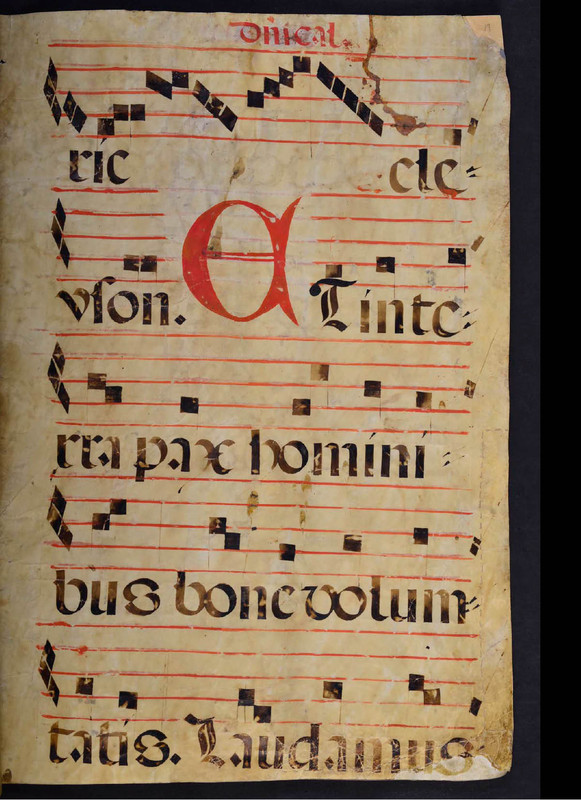 Dñical.
ric ele-
yson.
ET in te-
rra pax homini-
bus bone volum-
tatis. Laudamus